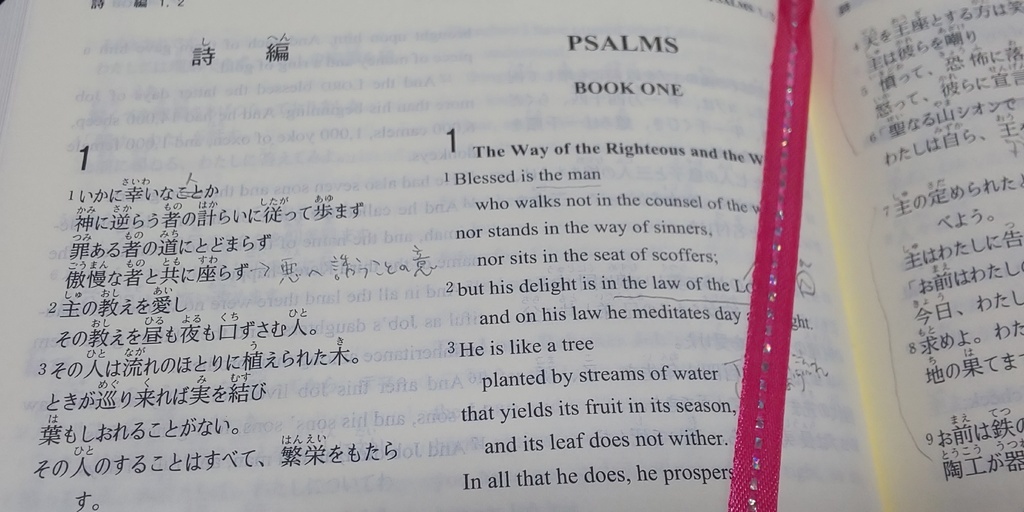 詩 編 1, 2
詩 編
1
1いかに幸いなことか
神に逆らう者の計らいに従って歩まず
罪ある者の道にとどまらず
傲慢な者と共に座らず
2主の教えを愛し
その教えを昼も夜も口ずさむ人。
3その人は流れのほとりに植えられた木。
ときが巡り来れば実を結び
葉もしおれることがない。
その人のすることはすべて、繁栄をもたら
す。
PSALMS
BOOK ONE
1
The Way of the Righteous and the W
1 Blessed is the man
who walks not in the counsel of the w
nor stands in the way of sinners,
nor sits in the seat of scoffers;
2 but his delight is in the law of the Lo
and on his law he meditates day a ght.
3 He is like a tree
planted by streams of water
that yields its fruit in its season,
and its leaf does not wither.
In all that he does, he prospers
4 天を王座とする方は笑
主は彼らを嘲り
5 憤って、恐怖に落
怒って、彼らに宣言
6「聖なる山シオンで
わたしは自ら、王
7 主の定められたと
べよう。
主はわたしに告
「お前はわたしの
今日、わたし
8 求めよ。わた
地の果てま
9 お前は鉄の
陶工が器